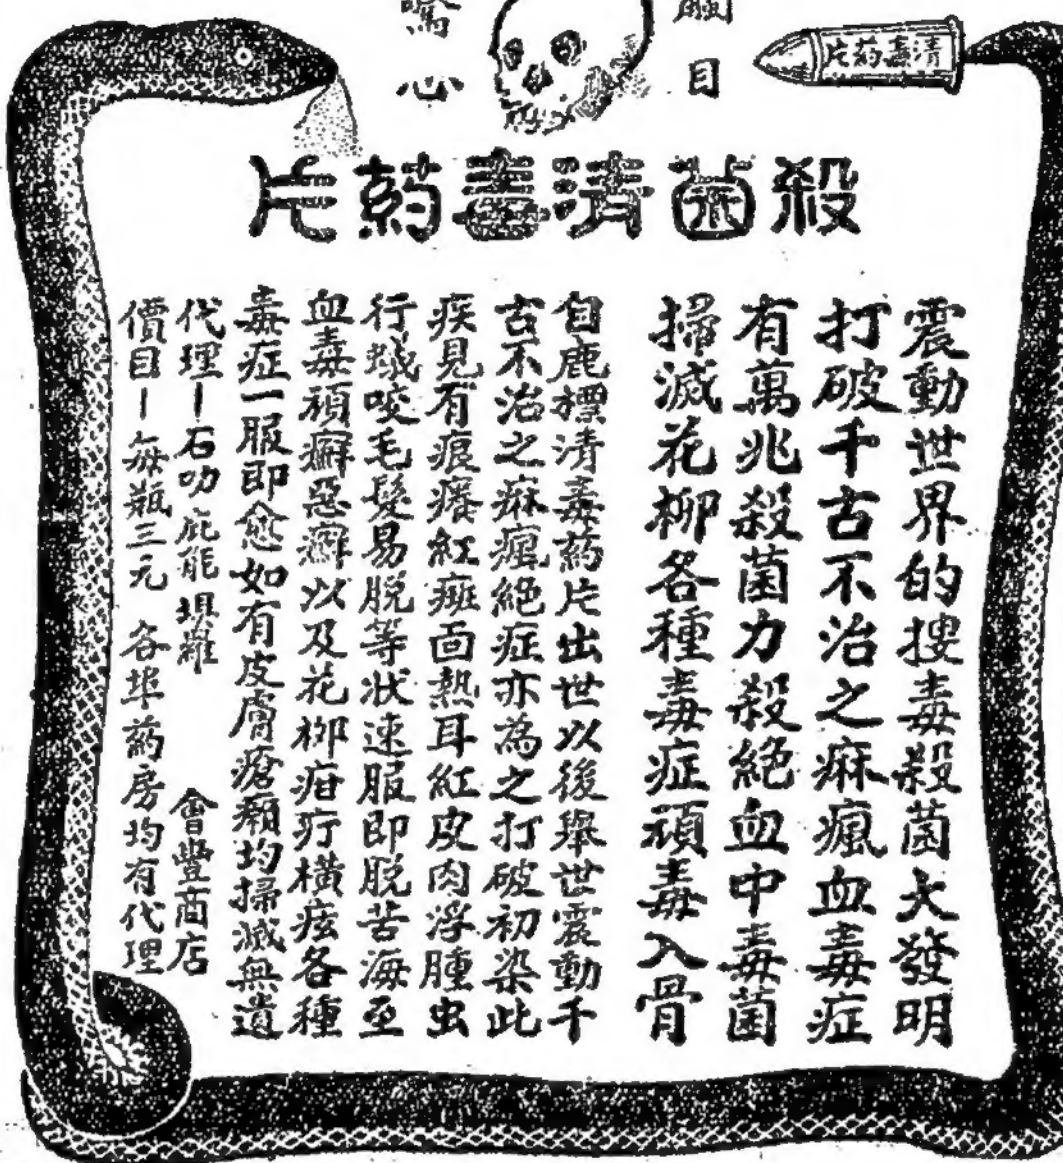 觸目
驚心
清毒葯片
殺菌清毒葯片
震動世界的搜毒殺菌大發明
打破千古不治之麻瘋血毒症
有萬兆殺菌力殺絕血中毒菌
掃滅花柳各種毒症頑毒入骨
自鹿標清毒葯片出世以後舉世震動千
古不治之麻瘋絕症亦為之打破初染此
疾見有痕癢紅斑面熱耳紅皮肉浮腫虫
行蟻咬毛髮易脫等狀速服即脫苦海至
血毒頑癬惡癬以及花柳疳疔橫痃各種
毒症一服即愈如有皮膚瘡癩均掃滅無遺
代理—石叻庇能埧羅 會豐商店
價目—每瓶三元 各埠葯房均有代理